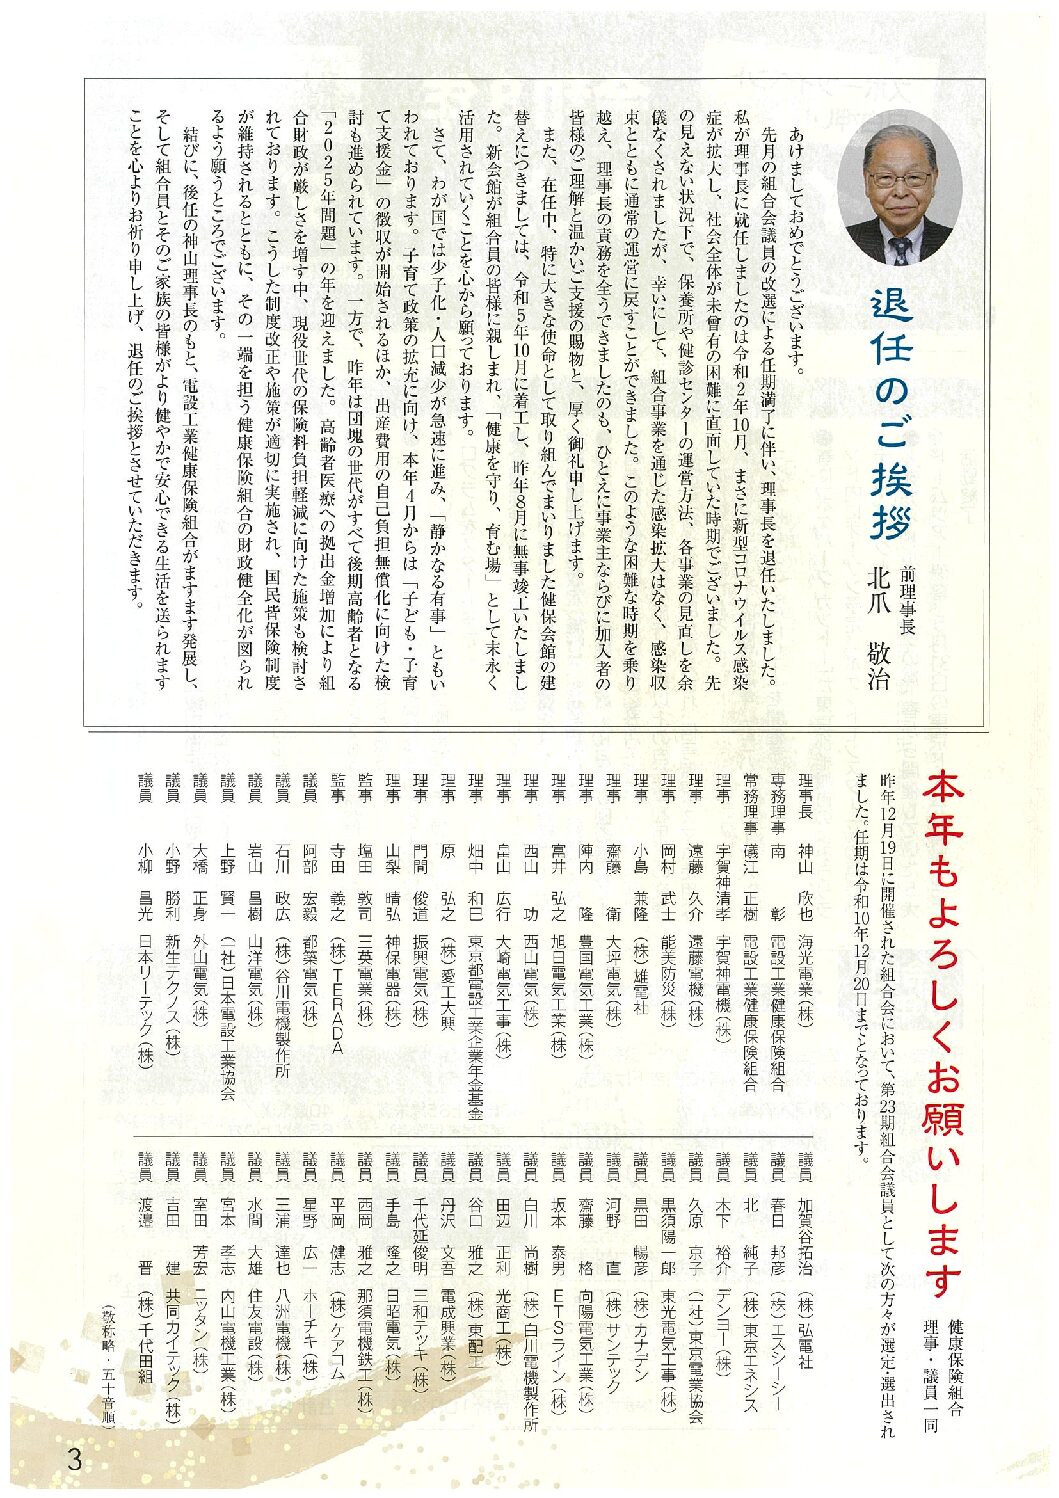 退任のご挨拶
前理事長
北爪　敬治
あけましておめでとうございます。
先月の組合会議員の改選による任期満了に伴い、理事長を退任いたしました。
私が理事長に就任しましたのは令和2年10月、まさに新型コロナウイルス感染
症が拡大し、社会全体が未曾有の困難に直面していた時期でございました。先
の見えない状況下で、保養所や健診センターの運営方法、各事業の見直しを余
儀なくされましたが、幸いにして、組合事業を通じた感染拡大はなく、感染収
束とともに通常の運営に戻すことができました。このような困難な時期を乗り
越え、理事長の責務を全うできましたのも、ひとえに事業主ならびに加入者の
皆様のご理解と温かいご支援の賜物と、厚く御礼申し上げます。
また、在任中、特に大きな使命として取り組んでまいりました健保会館の建
替えにつきましては、令和5年10月に着工し、昨年8月に無事竣工いたしまし
た。新会館が組合員の皆様に親しまれ、「健康を守り、育む場」として末永く
活用されていくことを心から願っております。
さて、わが国では少子化・人口減少が急速に進み、「静かなる有事」ともい
われております。子育て政策の拡充に向け、本年4月からは「子ども・子育
て支援金」の徴収が開始されるほか、出産費用の自己負担無償化に向けた検
討も進められています。一方で、昨年は団塊の世代がすべて後期高齢者となる
「2025年問題」の年を迎えました。高齢者医療への拠出金増加により組
合財政が厳しさを増す中、現役世代の保険料負担軽減に向けた施策も検討さ
れております。こうした制度改正や施策が適切に実施され、国民皆保険制度
が維持されるとともに、その一端を担う健康保険組合の財政健全化が図られ
るよう願うところでございます。
結びに、後任の神山理事長のもと、電設工業健康保険組合がますます発展し、
そして組合員とそのご家族の皆様がより健やかで安心できる生活を送られます
ことを心よりお祈り申し上げ、退任のご挨拶とさせていただきます。
本年もよろしくお願いします
健康保険組合
理事・議員一同
昨年12月19日に開催された組合会において、第23期組合会議員として次の方々が選定・選出され
ました。任期は令和10年12月20日までとなっております。
理事長　神山　欣也　海光電業(株)
専務理事　南　彰　電設工業健康保険組合
常務理事　磯江　正樹　電設工業健康保険組合
理事　宇賀神清孝　宇賀神電機(株)
理事　遠藤　久介　遠藤電機(株)
理事　岡村　武士　能美防災(株)
理事　小島　兼隆　(株)雄電社
理事　齋藤　衛　大坪電気(株)
理事　陣内　隆　豊国電気工業(株)
理事　富井　弘之　旭日電気工業(株)
理事　西山　功　西山電気(株)
理事　畠山　広行　大崎電気工事(株)
理事　畑中　和巳　東京都電設工業企業年金基金
理事　原　弘之　(株)愛工大興
理事　門間　俊道　振興電気(株)
理事　山梨　晴弘　神保電器(株)
監事　塩田　敦司　三英電業(株)
監事　寺田　義之　(株)TERADA
議員　阿部　宏毅　都築電気(株)
議員　石川　政広　(株)谷川電機製作所
議員　岩山　昌樹　山洋電気(株)
議員　上野　賢一　(一社)日本電設工業協会
議員　大橋　正身　外山電気(株)
議員　小野　勝利　新生テクノス(株)
議員　小柳　昌光　日本リーテック(株)
議員　加賀谷拓治　(株)弘電社
議員　春日　邦彦　(株)エスシーシー
議員　北　純子　(株)東京エネシス
議員　木下　裕介　デンヨー(株)
議員　久原　京子　(一社)東京電業協会
議員　黒須陽一郎　東光電気工事(株)
議員　黒田　暢彦　(株)カナデン
議員　河野　直　(株)サンテック
議員　齋藤　格　向陽電気工業(株)
議員　坂本　泰男　ETSライン(株)
議員　白川　尚樹　(株)白川電機製作所
議員　田辺　正利　光商工(株)
議員　谷口　雅之　(株)東配工
議員　丹沢　文吾　電成興業(株)
議員　千代延俊明　三和テッキ(株)
議員　手島　隆之　日昭電気(株)
議員　西岡　雅之　那須電機鉄工(株)
議員　平岡　健志　(株)ケアコム
議員　星野　広一　ホーチキ(株)
議員　三浦　達也　八洲電機(株)
議員　水間　大雄　住友電設(株)
議員　宮本　孝志　内山電機工業(株)
議員　室田　芳宏　ニッタン(株)
議員　吉田　建　共同カイテック(株)
議員　渡邉　晋　(株)千代田組
(敬称略・五十音順)
3